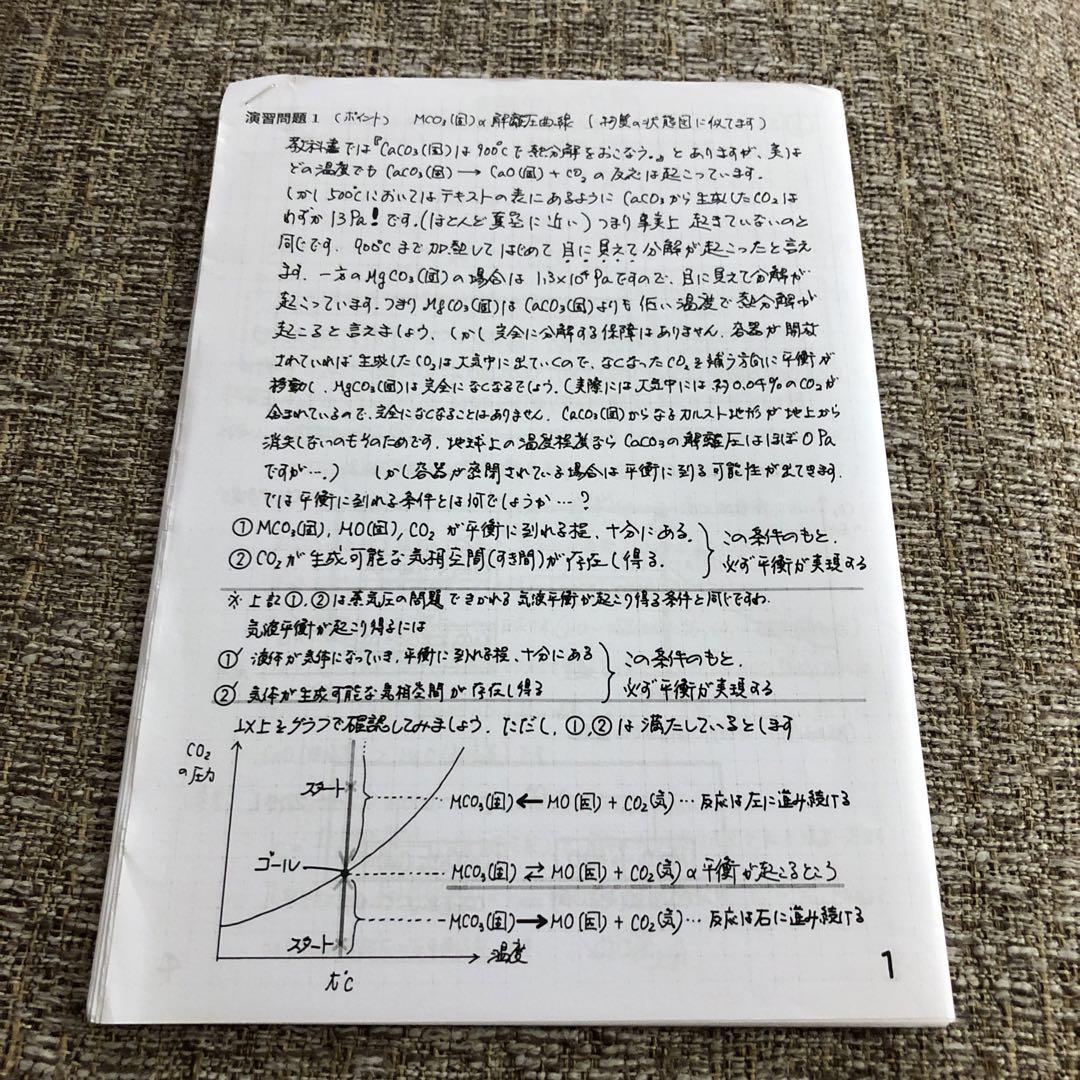 演習問題1 (ポイント) MCO₃(固)の解離圧曲線 (物質の状態図に似てます)
教科書では『CaCO₃(固)は900℃で熱分解をおこなう。』とありますが、実は
どの温度でも CaCO₃(固) → CaO(固) + CO₂ の反応は起こっています.
しかし 500℃においてはテキストの表にあるように CaCO₃から生成したCO₂は
わずか 13Pa! です.(ほとんど真空に近い) つまり事実上 起きていないのと
同じです. 900℃まで加熱してはじめて 目に見えて分解が起こったと言え
ます. 一方のMgCO₃(固)の場合は 1.3×10⁴Paですので、目に見えて分解が
起こっています. つまりMgCO₃(固)は CaCO₃(固)よりも 低い温度で熱分解が
起こると言えましょう. しかし完全に分解する保障はありません. 容器が開放
されていれば 生成したCO₂は大気中に出ていくので、なくなったCO₂を補う方向に平衡が
移動し、MgCO₃(固)は完全になくなるでしょう. (実際には大気中には約0.04%のCO₂が
含まれているので、完全になくなることはありません. CaCO₃(固)からなるカルスト地形が地上から
消失しないのもそのためです. 地球上の温度程度なら CaCO₃の解離圧はほぼ0Pa
ですが….) しかし容器が密閉されている場合は平衡に到る可能性が出てきます.
では平衡に到れる条件とは何でしょうか…?
① MCO₃(固), MO(固), CO₂ が平衡に到れる程、十分にある.
② CO₂が生成可能な気相空間(すき間)が存在し得る.
この条件のもと.
必ず平衡が実現する
※ 上記①,②は蒸気圧の問題できかれる気液平衡が起こり得る条件と同じですね.
気液平衡が起こり得るには
①′ 液体が気体になっていき、平衡に到れる程、十分にある
②′ 気体が生成可能な気相空間が存在し得る
この条件のもと.
必ず平衡が実現する
以上をグラフで確認してみましょう. ただし、①,②は満たしているとします
CO₂
の圧力
スタート
MCO₃(固) ← MO(固) + CO₂(気) … 反応は左に進み続ける
ゴール
MCO₃(固) ⇄ MO(固) + CO₂(気) の平衡が起こるところ
MCO₃(固) → MO(固) + CO₂(気) … 反応は右に進み続ける
スタート
温度
t℃
1